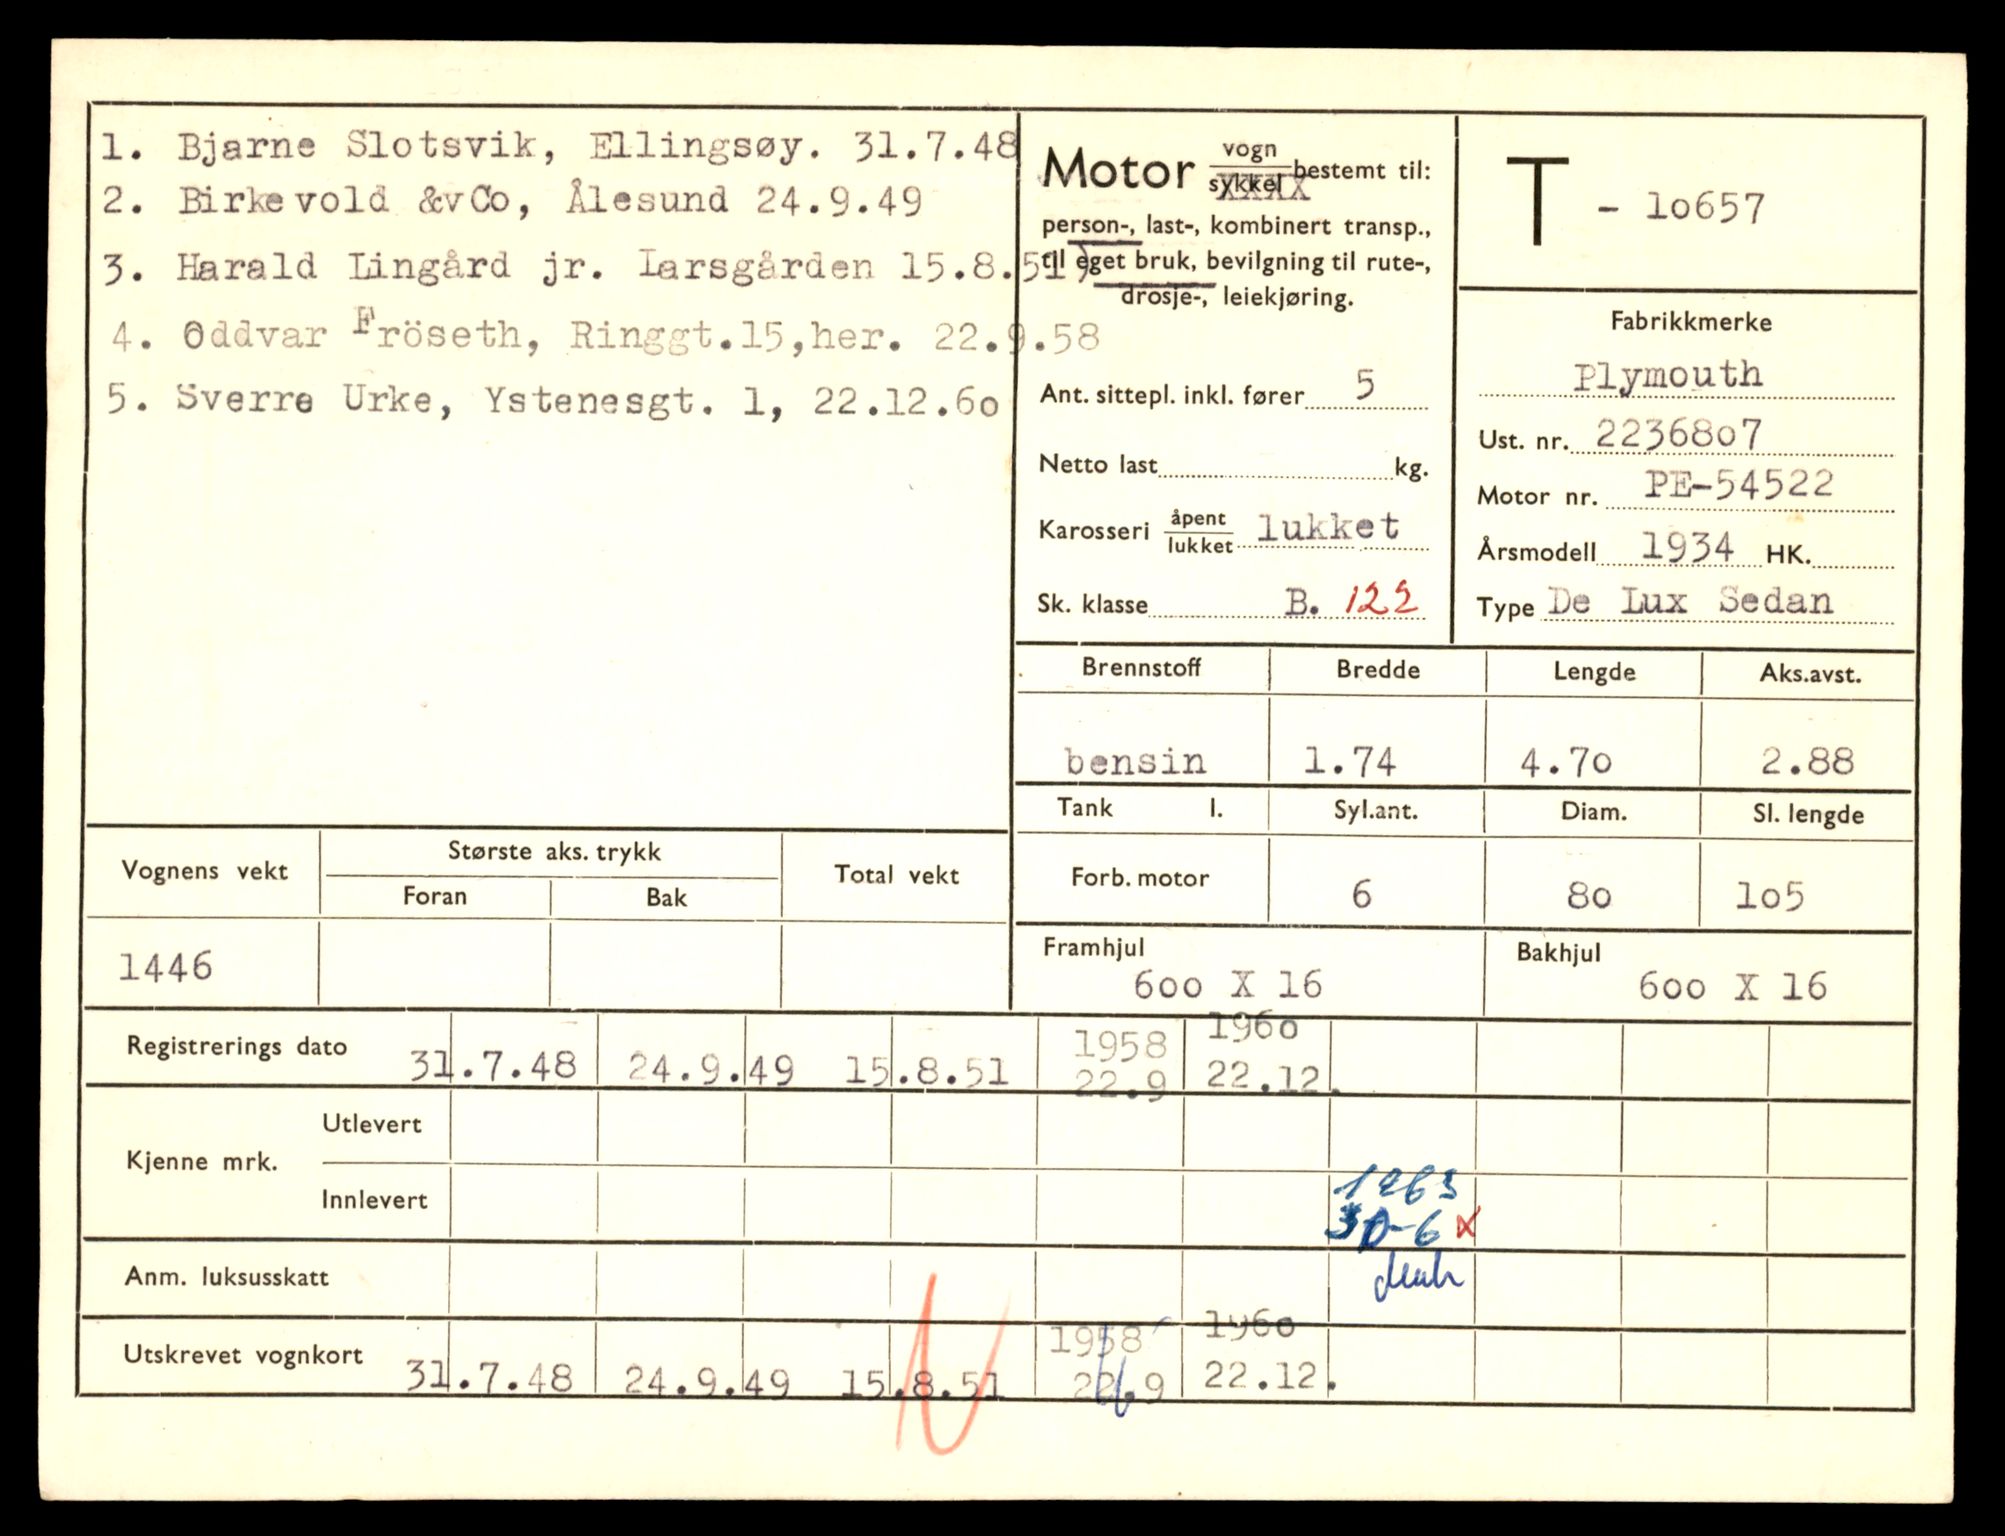 1. Bjarne Slotsvik, Ellingsøy. 31.7.48
2. Birkevold &vCo, Ålesund 24.9.49
3. Harald Lingård jr. Larsgården 15.8.51)
4. Oddvar Fröseth, Ringgt.15,her. 22.9.58
5. Sverre Urke, Ystenesgt. 1, 22.12.60
Motor vogn/sykkel bestemt til:
person-, last-, kombinert transp.,
til eget bruk, bevilgning til rute-,
drosje-, leiekjøring.
Ant. sittepl. inkl. fører 5
Netto last kg.
Karosseri åpent/lukket lukket
Sk. klasse B. 122
T - 10657
Fabrikkmerke
Plymouth
Ust. nr. 2236807
Motor nr. PE-54522
Årsmodell 1934 HK.
Type De Lux Sedan
Brennstoff Bredde Lengde Aks.avst.
bensin 1.74 4.70 2.88
Tank l. Syl.ant. Diam. Sl. lengde
Forb. motor 6 80 105
Framhjul Bakhjul
600 X 16 600 X 16
Vognens vekt Største aks. trykk Total vekt
Foran Bak
1446
Registrerings dato 31.7.48 24.9.49 15.8.51 1958 22.9 1960 22.12.
Kjenne mrk. Utlevert
Innlevert 1963
30-6 x
Anm. luksusskatt
Utskrevet vognkort 31.7.48 24.9.49 15.8.51 1958 22.9 1960 22.12.